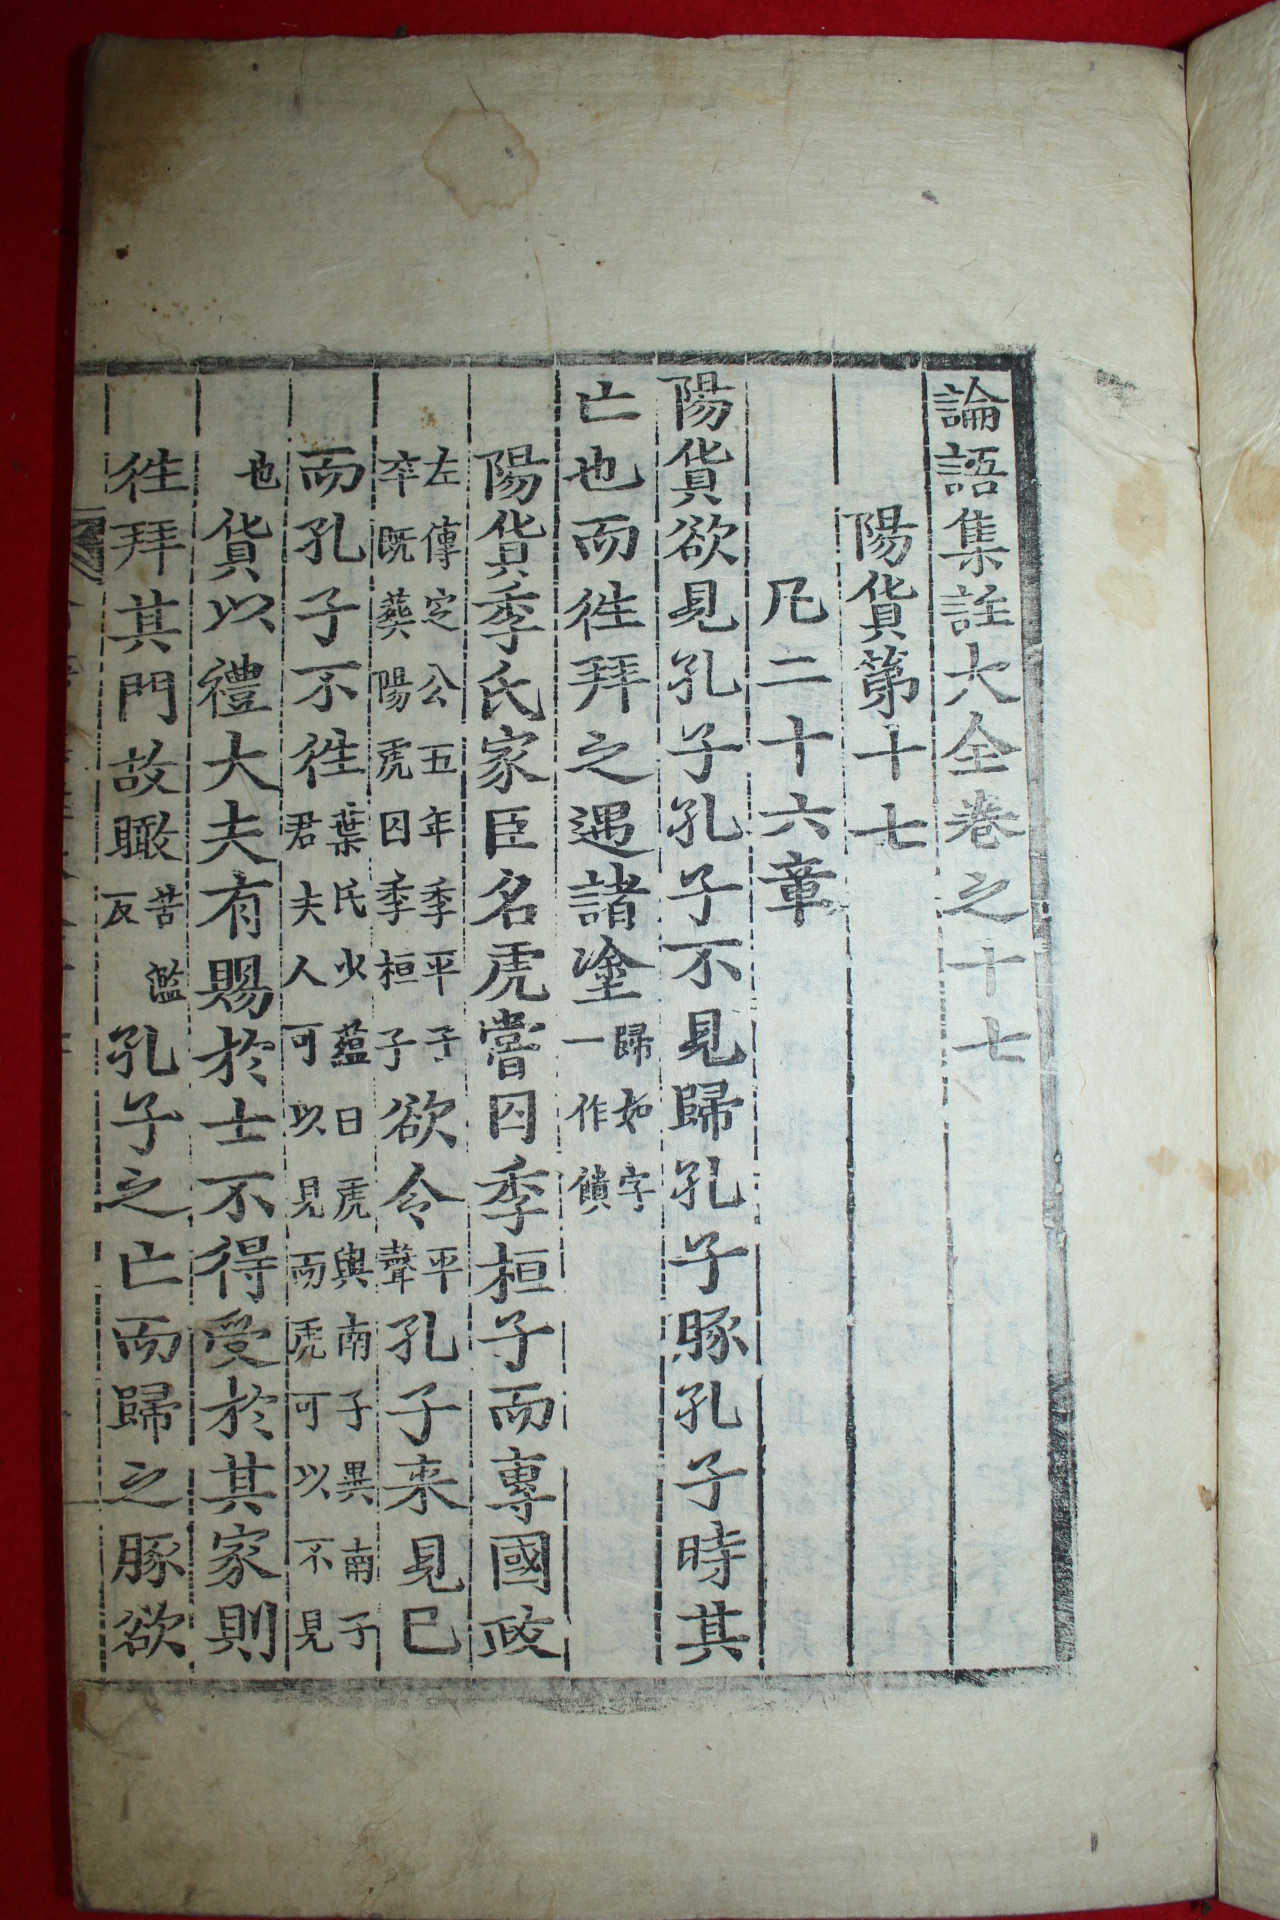 論語集註大全卷之十七
陽貨第十七
凡二十六章
陽貨欲見孔子孔子不見歸孔子豚孔子時其
亡也而徃拜之遇諸塗歸如字一作饋
陽貨季氏家臣名虎嘗囚季桓子而專國政
左傳定公五年季平子卒既葬陽虎囚季桓子欲令平聲孔子来見已
而孔子不徃葉氏少蘊曰虎與南子異南子君夫人可以見而虎可以不見
也貨以禮大夫有賜於士不得受於其家則
徃拜其門故瞰苦濫反孔子之亡而歸之豚欲